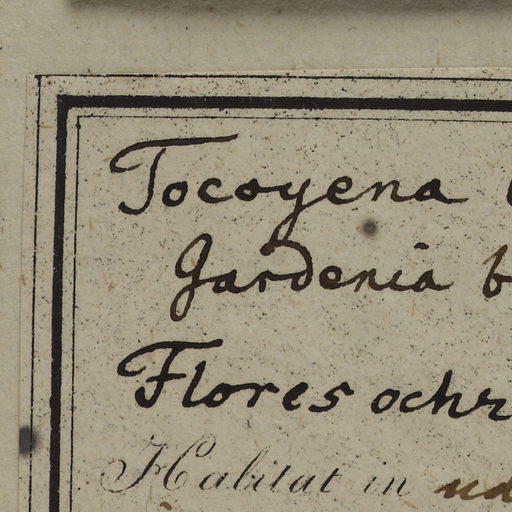 Tocoyena
Gardenia b
Flores ochr
Habitat in ud